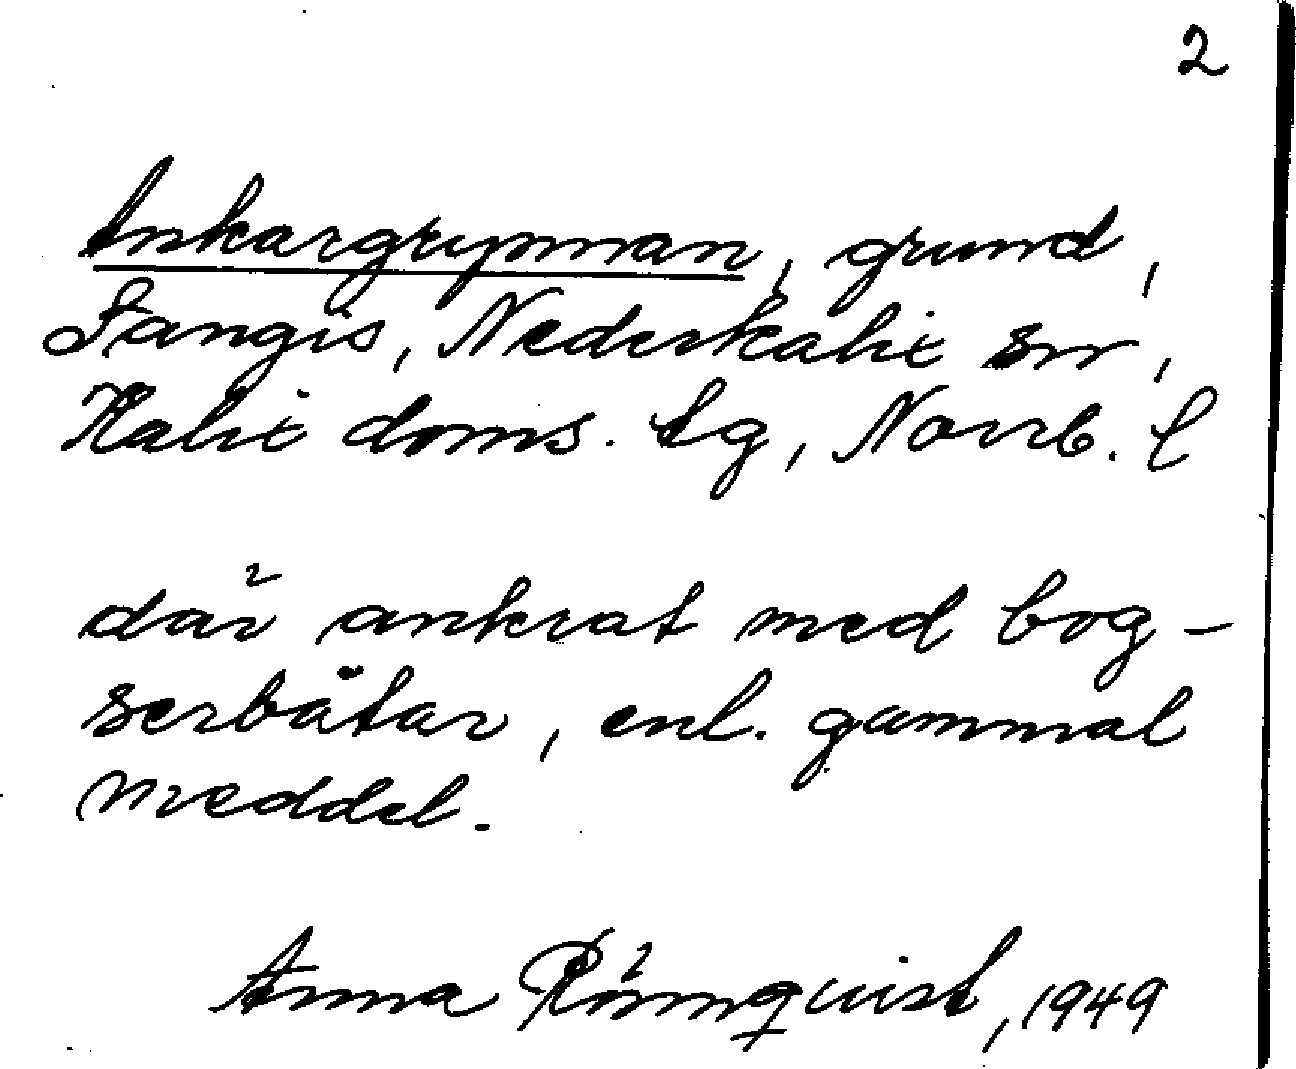 2
Ankargrynnan, grund,
Fångis, Nederkalix sn,
Kalix doms. tg, Norrb. l
där ankrat med bog-
serbåtar, enl. gammal
meddel.
Anna Rönnqvist, 1949